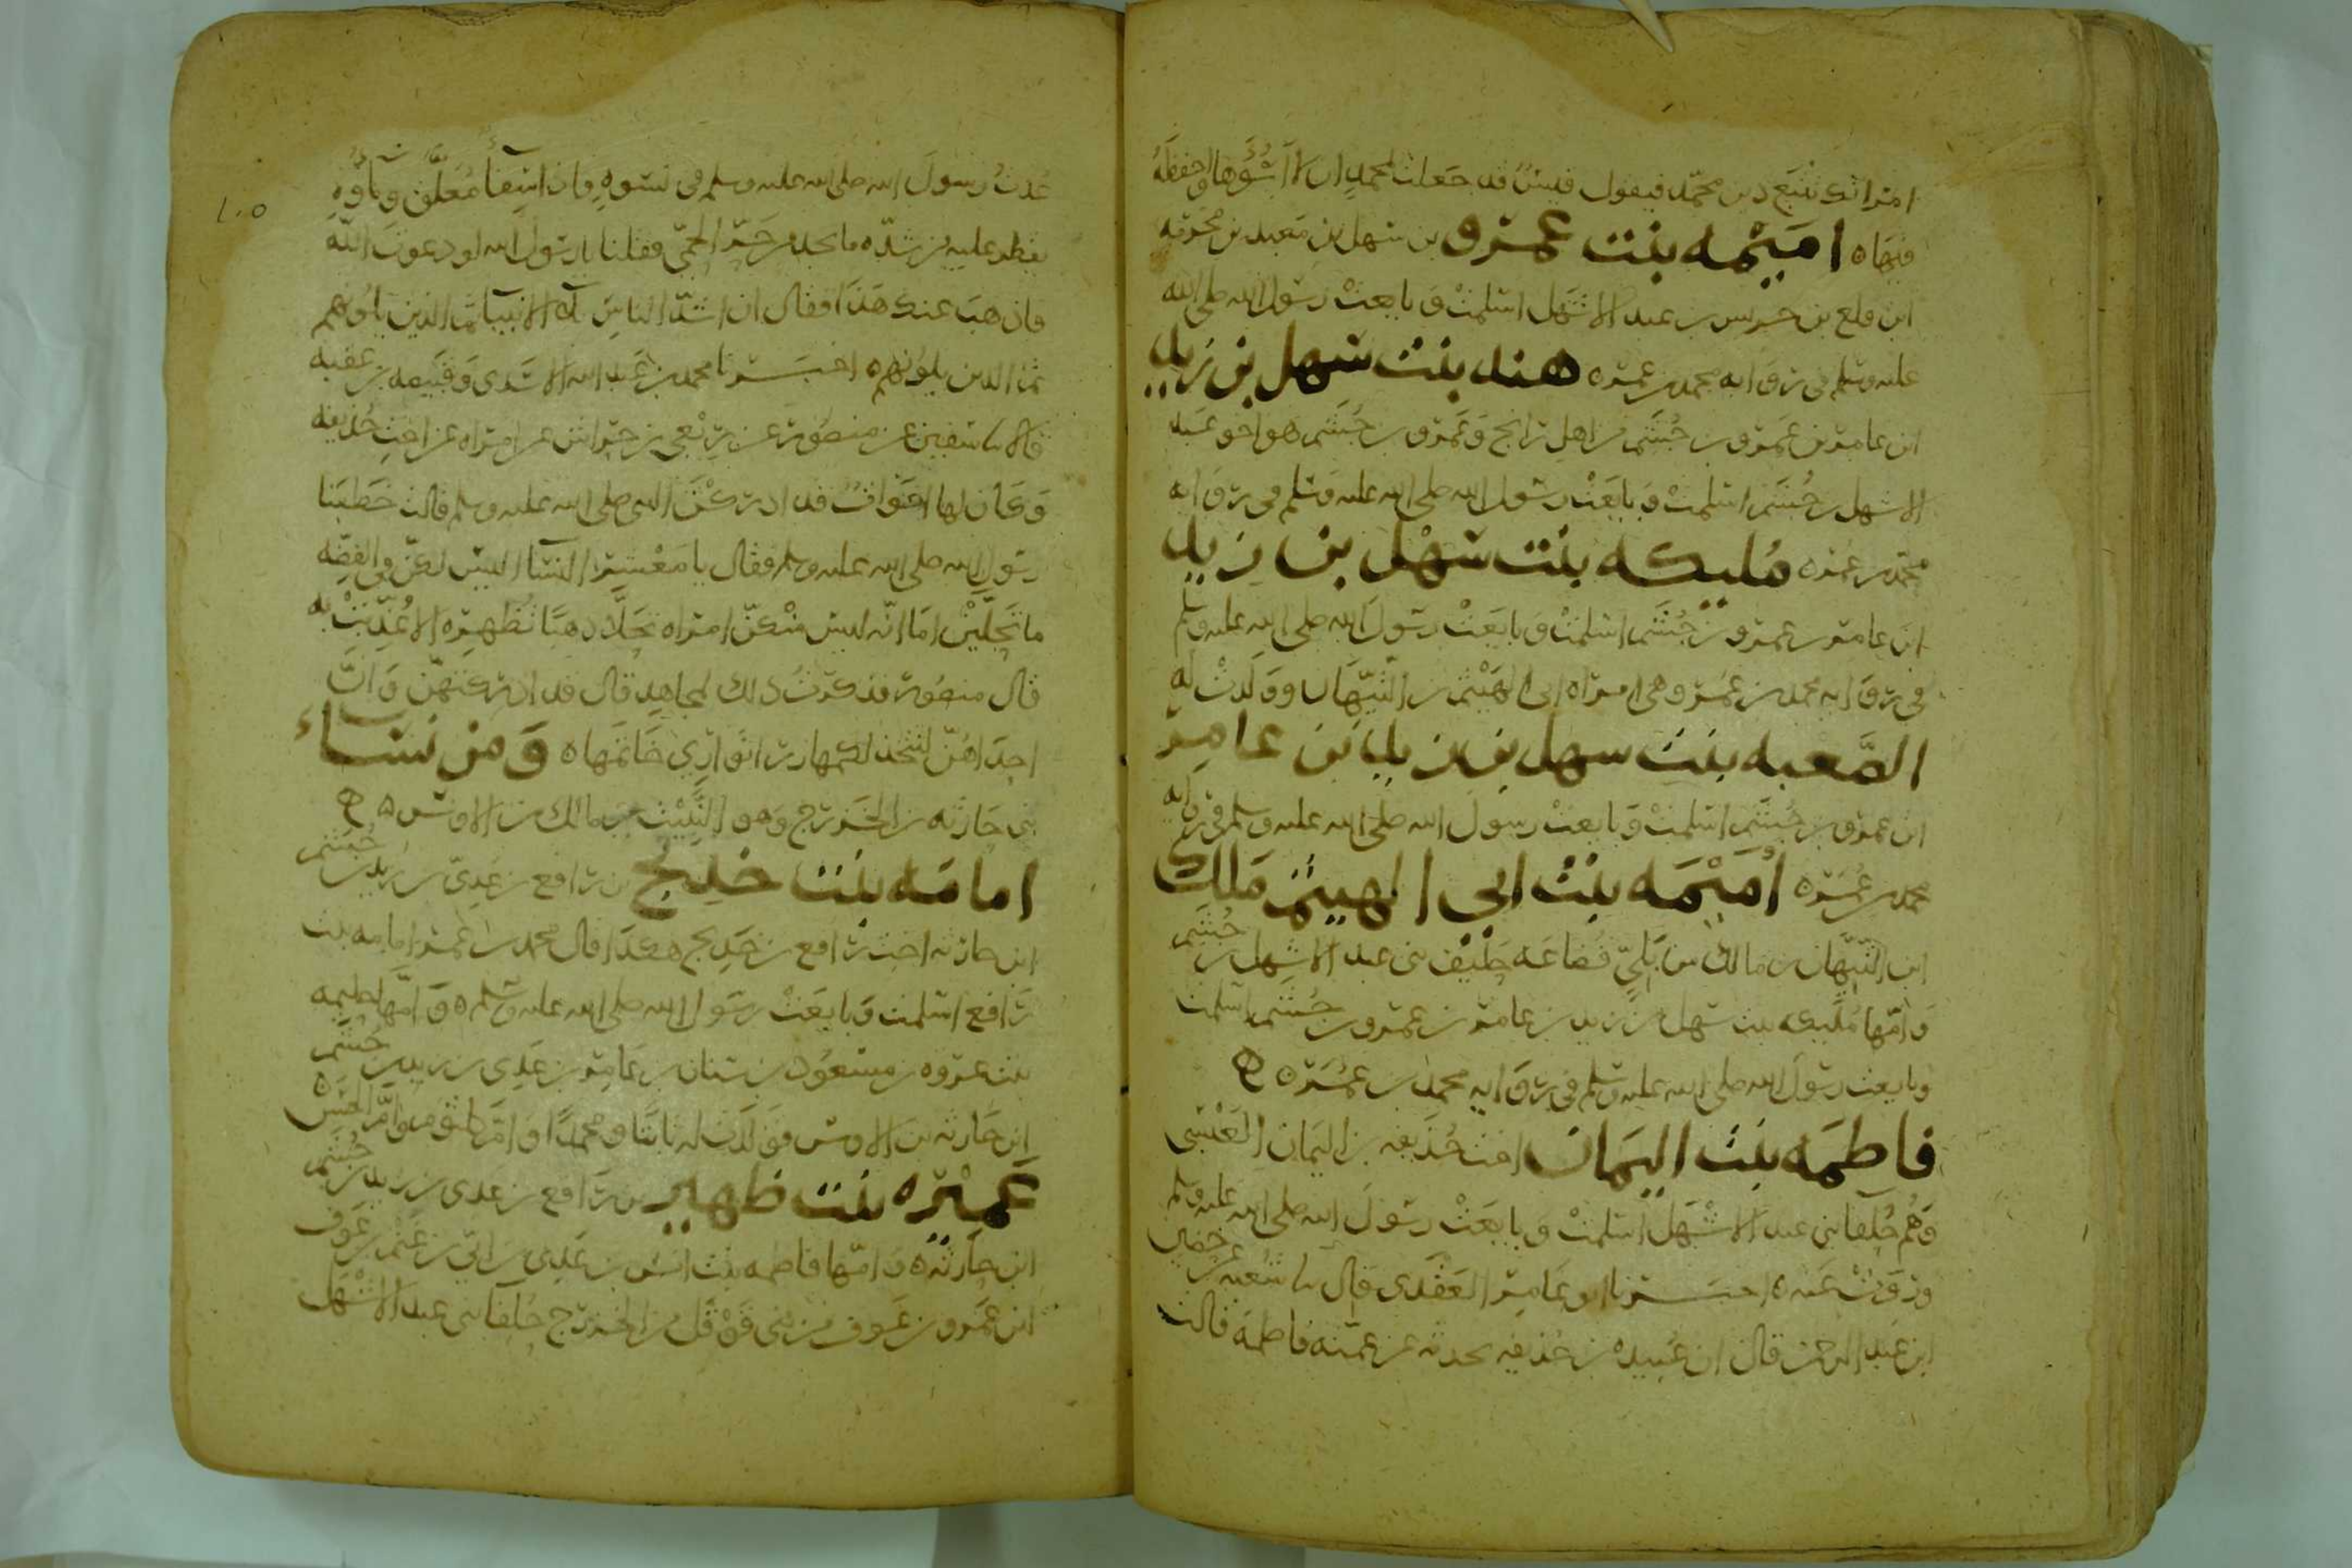 امراتك تتبع دين محمد فيقول قيس قد جعلت لمحمد ان لا اسؤها واحفظه
فيها ه اميمه بنت عمرو بن سهل بن معبد بن مخرمه
ابن قلع بن حريس بن عبد الاشهل اسلمت وبايعت رسول الله صلى الله
عليه وسلم في روايه محمد بن عمر ه هند بنت سهل بن زيد
ابن عامر بن عمرو بن جشم من اهل راتج وعمرو بن جشم هو اخو عبد
الاشهل بن جشم اسلمت وبايعت رسول الله صلى الله عليه وسلم في روايه
محمد بن عمر ه مليكه بنت سهل بن زيد
ابن عامر بن عمرو بن جشم اسلمت وبايعت رسول الله صلى الله عليه وسلم
في روايه محمد بن عمر وهي امراه ابي الهيثم بن التيهان وولدت له
الصعبه بنت سهل بن زيد بن عامر
ابن عمرو بن جشم اسلمت وبايعت رسول الله صلى الله عليه وسلم في روايه
محمد بن عمر ه اميمه بنت ابي الهيثم ملك
ابن التيهان بن مالك من بلي قضاعه حليف بني عبد الاشهل بن جشم
وامها مليكه بنت سهل بن زيد بن عامر بن عمرو بن جشم اسلمت
وبايعت رسول الله صلى الله عليه وسلم في روايه محمد بن عمر ه
فاطمه بنت اليمان اخت حذيفه بن اليمان العبسي
وهم حلفا بني عبد الاشهل اسلمت وبايعت رسول الله صلى الله عليه وسلم
وروت عنه ه اخبرنا ابو عامر العقدي قال سا شعبه عن حصين
ابن عبد الرحمن قال ابن عبيده بن حذيفه يحدثه عن عمته فاطمه قالت
١٠٥
عدت رسول الله صلى الله عليه وسلم في نسوه فاذا سقا معلق وماوه
يقطر عليه من شده ما يجد من حر الحمى فقلنا يا رسول الله لو دعوت الله
فاذهب عنك هذا فقال ان اشد الناس بلا الانبيا ثم الذين يلونهم
ثم الذين يلونهم ه اخبرنا محمد بن عبد الله الاسدي وقبيصه بن عقبه
قالا سا سفين عن منصور عن ربعي بن حراش عن امراه عن اخت حذيفه
وكان لها اخوات قد ادركن النبي صلى الله عليه وسلم قالت خطبنا
رسول الله صلى الله عليه وسلم فقال يا معشر النسا اليس لكن في الفضه
ما تحلين اما انه ليس منكن امراه تحلا ذهبا تظهره الا عذبت به
قال منصور فذكرت ذلك لمجاهد قال قد ادركتهن وان
احداهن لتتخذ لكمها زرا تواري خاتمها ه ومن نساء
بني حارثه بن الخزرج وهو النبيت بن مالك بن الاوس ه
امامه بنت خديج بن رافع بن عدي بن زيد بن جشم
ابن حارثه اخت رافع بن خديج هكذا قال محمد بن عمر امامه بنت
رافع اسلمت وبايعت رسول الله صلى الله عليه وسلم ه وامها حليمه
بنت عروه بن مسعود بن سنان بن عامر بن عدي بن زيد بن جشم
ابن حارثه بن الاوس فولدت له ثابتا ومحمدا وام كلثوم وام الحسن ه
عميره بنت ظهير بن رافع بن عدي بن زيد بن جشم
ابن حارثه ه وامها فاطمه بنت بشر بن عدي بن ابي بن غنم بن عوف
ابن عمرو بن عوف من بني قوقل من الخزرج حلفا بني عبد الاشهل